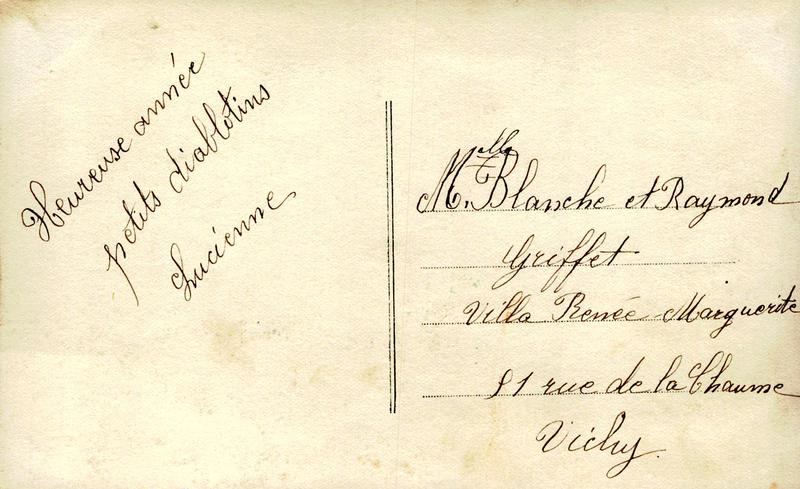 Heureuse année
petits diablotins
Lucienne
M.elle Blanche et Raymond
Griffet
Villa Renée-Marguerite
rue de la Chaume
Vichy.